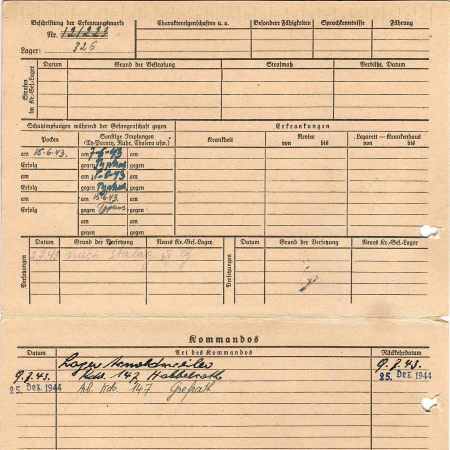 Beschriftung der Erkennungsmarke
Nr. 121223
Lager: 326
Charaktereigenschaften u. a.
Besondere Fähigkeiten
Sprachkenntnisse
Führung
Strafen im Kr.-Gef.-Lager
Datum
Grund der Bestrafung
Strafmaß
Verbüßt, Datum
Schutzimpfungen während der Gefangenschaft gegen
Erkrankungen
Pocken
Sonstige Impfungen
(Ty-Paraty, Ruhr, Cholera usw.)
Krankheit
Revier
von bis
Lazarett — Krankenhaus
von bis
am 15.6.43. am 7-6-43 am
Erfolg gegen Typhus gegen
am am am
Erfolg gegen Typhus gegen
am am 15.6.43. am
Erfolg gegen Typhus gegen
am am
gegen gegen
Versetzungen
Datum
Grund der Versetzung
Neues Kr.-Gef.-Lager
Datum
Grund der Versetzung
Neues Kr.-Gef.-Lager
nach Stalag VI G
Kommandos
Datum
Art des Kommandos
Rückkehrdatum
Lager Arnoldsweiler
9.7.43. Kdo. 147 Habbelrath 9.7.43.
25. Dez. 1944 Ab. Kdo. 147 Grefrath 25. Dez. 1944